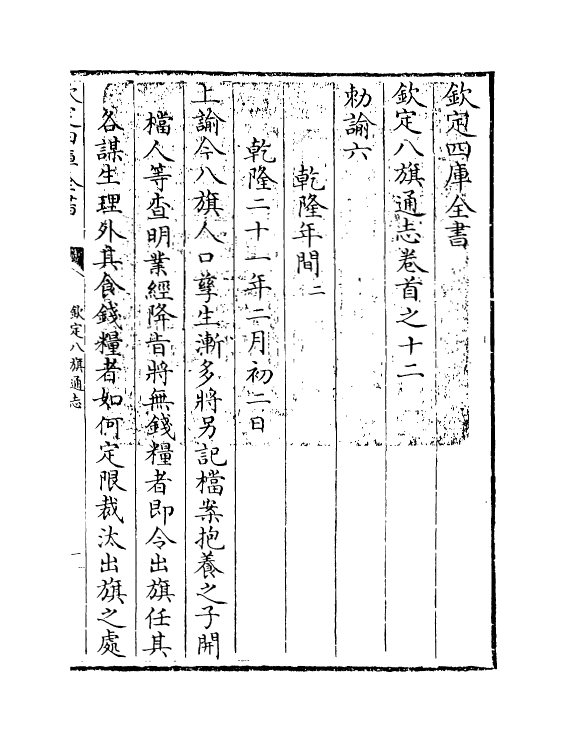 欽定四庫全書
欽定八旗通志卷首之十二
勅諭六
乾隆年間二
乾隆二十一年二月初二日
上諭今八旗人口孳生漸多將另記檔案抱養之子開
檔人等查明業經降旨將無錢糧者即令出旗任其
各謀生理外其食錢糧者如何定限裁汰出旗之處
欽定四庫全書
欽定八旗通志
一